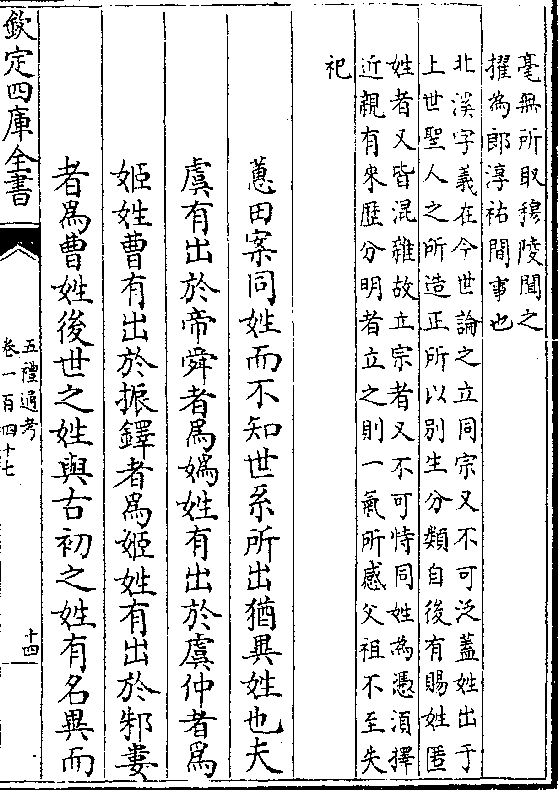 毫無所取穆陵聞之
擢為郎淳祐間事也
北溪字義在今世論之立同宗又不可泛蓋姓出于
上世聖人之所造正所以别生分類自後有賜姓匿
姓者又皆混雜故立宗者又不可恃同姓為憑湏擇
近親有來歴分明者立之則一氣所感父祖不至失
祀
蕙田案同姓而不知世系所出猶異姓也夫
虞有出於帝舜者為媯姓有出於虞仲者為
姬姓曹有出於振鐸者為姬姓有出於邾婁
者為曹姓後世之姓與古初之姓有名異而
欽定四庫全書
五禮通考
卷一百四十七
十四